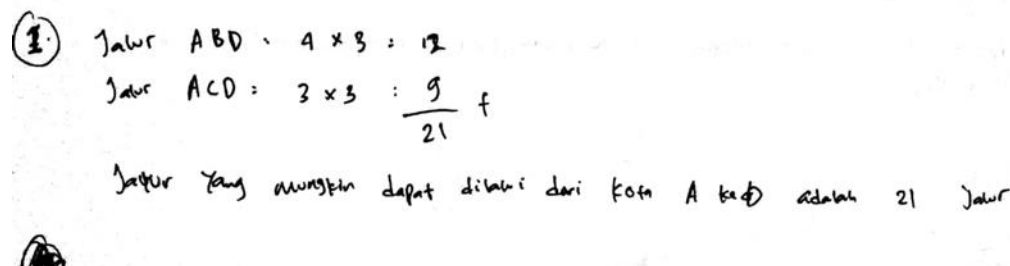 1. Jalur ABD : 4 x 3 : 12
Jalur ACD : 3 x 3 : 9 +
21
Jalur yang mungkin dapat dilalui dari kota A ke D adalah 21 Jalur